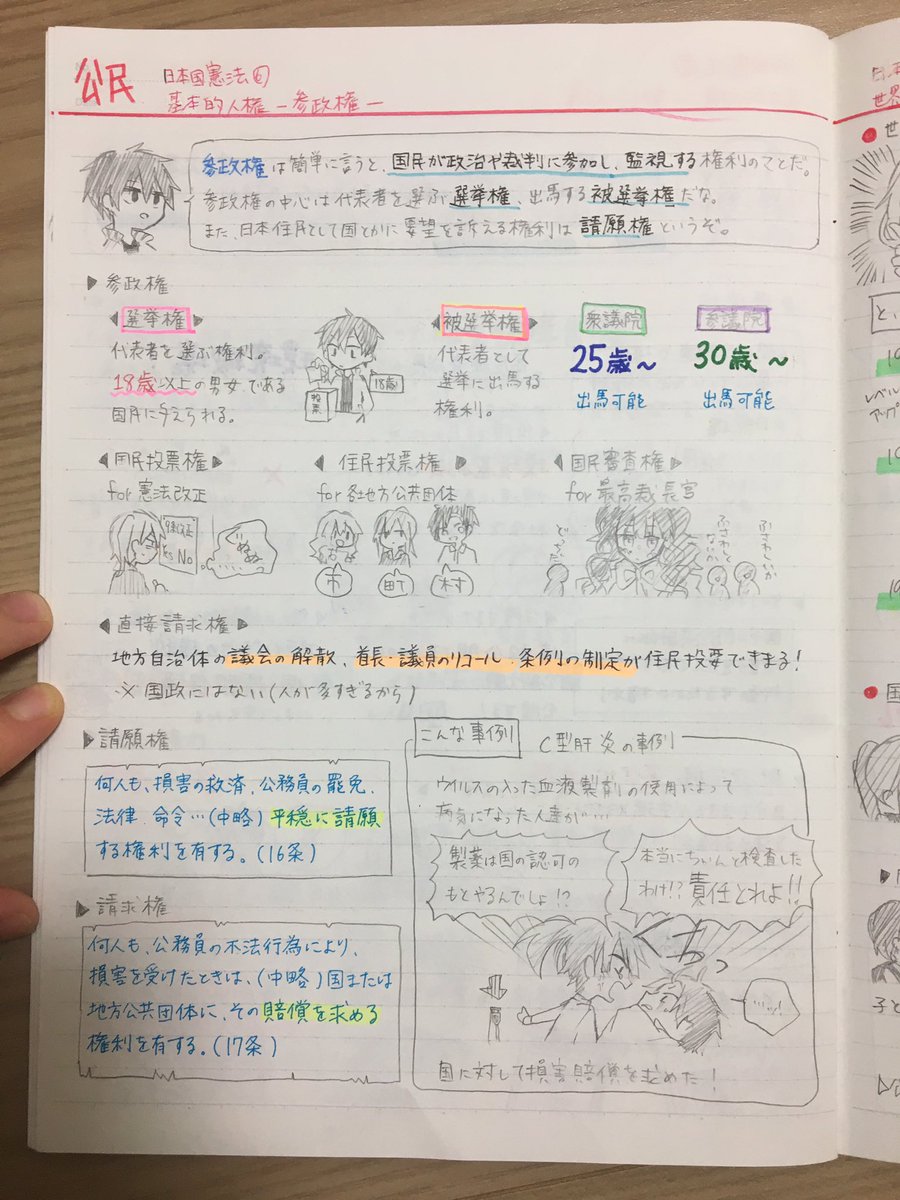 公民
日本国憲法⑥
基本的人権 ー参政権ー
参政権は簡単に言うと、国民が政治や裁判に参加し、監視する権利のことだ。
参政権の中心は代表者を選ぶ選挙権、出馬する被選挙権だな。
また、日本住民として国とかに要望を訴える権利は請願権というぞ。
▶参政権
◀選挙権▶
代表者を選ぶ権利。
18歳以上の男女である
国民に与えられる。
投票
18歳!
◀被選挙権▶
代表者として
選挙に出馬する
権利。
衆議院
25歳～
出馬可能
参議院
30歳～
出馬可能
◀国民投票権▶
for 憲法改正
9条改正
Yes No
◀住民投票権▶
for 各地方公共団体
市
町
村
◀国民審査権▶
for 最高裁長官
どっちだ
ふさわしく
ないか
ふさわしいか
◀直接請求権▶
地方自治体の議会の解散、首長・議員のリコール・条例の制定が住民投票できまる!
※国政にはない(人が多すぎるから)
▶請願権
何人も、損害の救済、公務員の罷免、
法律、命令…(中略)平穏に請願
する権利を有する。(16条)
▶請求権
何人も、公務員の不法行為により、
損害を受けたときは、(中略)国または
地方公共団体に、その賠償を求める
権利を有する。(17条)
こんな事例
C型肝炎の事例
ウイルスの入った血液製剤の使用によって
病気になった人達が…
製薬は国の認可の
もとやるんでしょ!?
本当にちゃんと検査した
わけ!? 責任とれよ!!
国に対して損害賠償を求めた!